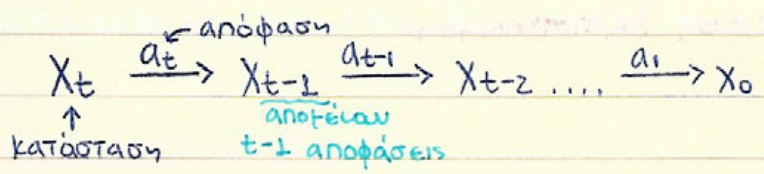 απόφαση
Xt at→ Xt-1 at-1→ Xt-2 .... a1→ X0
κατάσταση
απομένουν
t-1 αποφάσεις